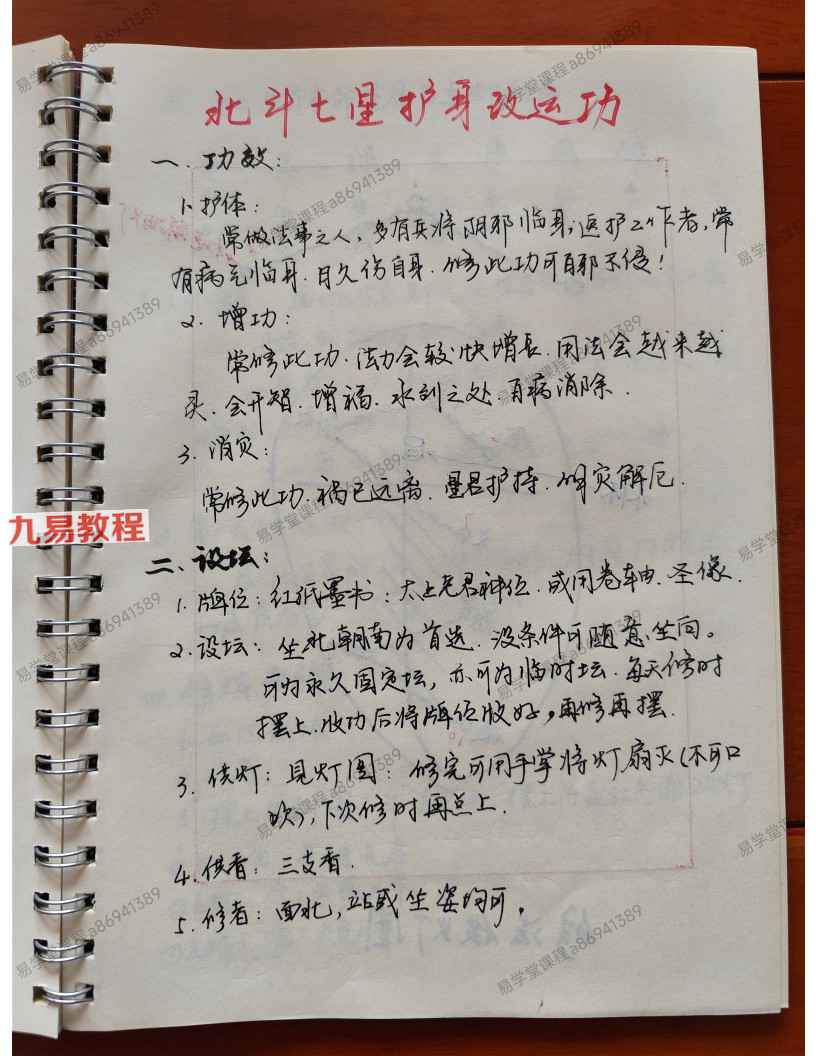 北斗七星护身改运功
一、功效：
1、护体：
常做法事之人，多有兵将阴邪临身，返护工作者，常
有病气临身．日久伤自身．修此功可百邪不侵！
2．增功：
常修此功．法力会较快增长．用法会越来越
灵．会开智．增福．水到之处．百病消除．
3．消灾：
常修此功．祸已远离．星君护持．消灾解厄．
二、设坛：
1．牌位：红纸墨书：太上老君神位．或用卷轴．圣像．
2．设坛：坐北朝南为首选．没条件可随意坐向。
可为永久固定坛，亦可为临时坛．每天修时
摆上．收功后将牌位收好，再修再摆．
3．供灯：见灯图：修完可用手掌将灯扇灭（不可口
吹），下次修时再点上．
4．供香：三支香．
5．修者：面北，站或坐姿均可。
九易教程
易学堂课程 a86941389